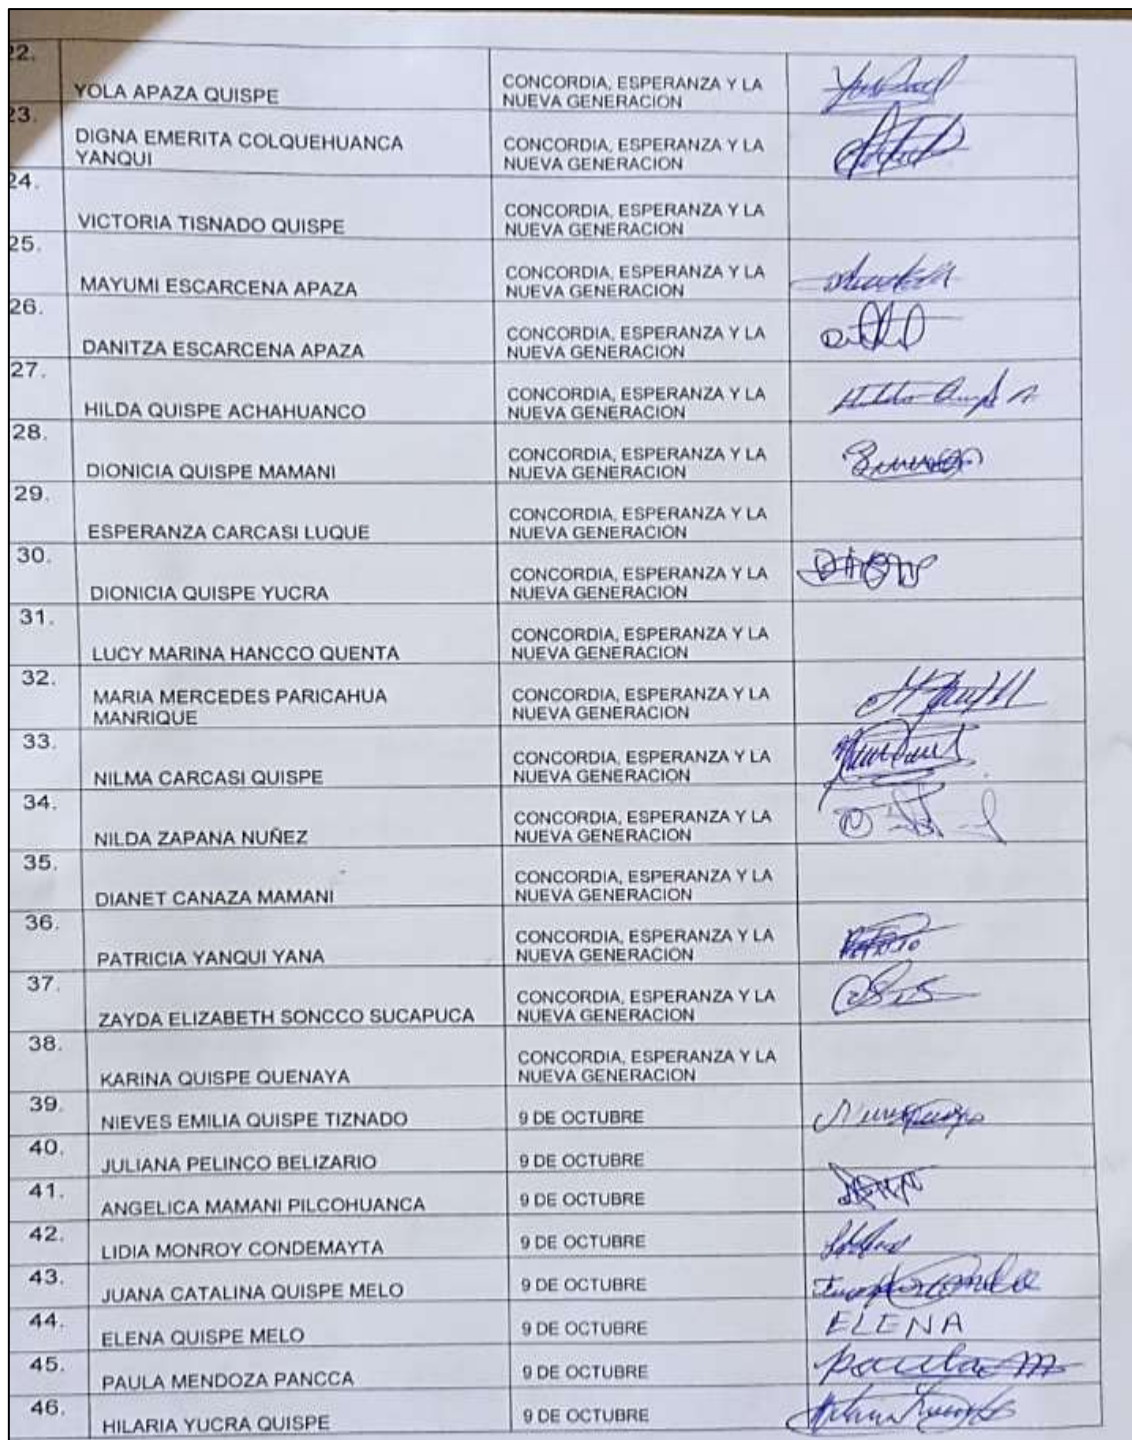 22.
YOLA APAZA QUISPE
CONCORDIA, ESPERANZA Y LA
NUEVA GENERACION
23.
DIGNA EMERITA COLQUEHUANCA
YANQUI
CONCORDIA, ESPERANZA Y LA
NUEVA GENERACION
24.
VICTORIA TISNADO QUISPE
CONCORDIA, ESPERANZA Y LA
NUEVA GENERACION
25.
MAYUMI ESCARCENA APAZA
CONCORDIA, ESPERANZA Y LA
NUEVA GENERACION
26.
DANITZA ESCARCENA APAZA
CONCORDIA, ESPERANZA Y LA
NUEVA GENERACION
27.
HILDA QUISPE ACHAHUANCO
CONCORDIA, ESPERANZA Y LA
NUEVA GENERACION
28.
DIONICIA QUISPE MAMANI
CONCORDIA, ESPERANZA Y LA
NUEVA GENERACION
29.
ESPERANZA CARCASI LUQUE
CONCORDIA, ESPERANZA Y LA
NUEVA GENERACION
30.
DIONICIA QUISPE YUCRA
CONCORDIA, ESPERANZA Y LA
NUEVA GENERACION
31.
LUCY MARINA HANCCO QUENTA
CONCORDIA, ESPERANZA Y LA
NUEVA GENERACION
32.
MARIA MERCEDES PARICAHUA
MANRIQUE
CONCORDIA, ESPERANZA Y LA
NUEVA GENERACION
33.
NILMA CARCASI QUISPE
CONCORDIA, ESPERANZA Y LA
NUEVA GENERACION
34.
NILDA ZAPANA NUÑEZ
CONCORDIA, ESPERANZA Y LA
NUEVA GENERACION
35.
DIANET CANAZA MAMANI
CONCORDIA, ESPERANZA Y LA
NUEVA GENERACION
36.
PATRICIA YANQUI YANA
CONCORDIA, ESPERANZA Y LA
NUEVA GENERACION
37.
ZAYDA ELIZABETH SONCCO SUCAPUCA
CONCORDIA, ESPERANZA Y LA
NUEVA GENERACION
38.
KARINA QUISPE QUENAYA
CONCORDIA, ESPERANZA Y LA
NUEVA GENERACION
39.
NIEVES EMILIA QUISPE TIZNADO
9 DE OCTUBRE
40.
JULIANA PELINCO BELIZARIO
9 DE OCTUBRE
41.
ANGELICA MAMANI PILCOHUANCA
9 DE OCTUBRE
42.
LIDIA MONROY CONDEMAYTA
9 DE OCTUBRE
43.
JUANA CATALINA QUISPE MELO
9 DE OCTUBRE
44.
ELENA QUISPE MELO
9 DE OCTUBRE
ELENA
45.
PAULA MENDOZA PANCCA
9 DE OCTUBRE
paula m
46.
HILARIA YUCRA QUISPE
9 DE OCTUBRE